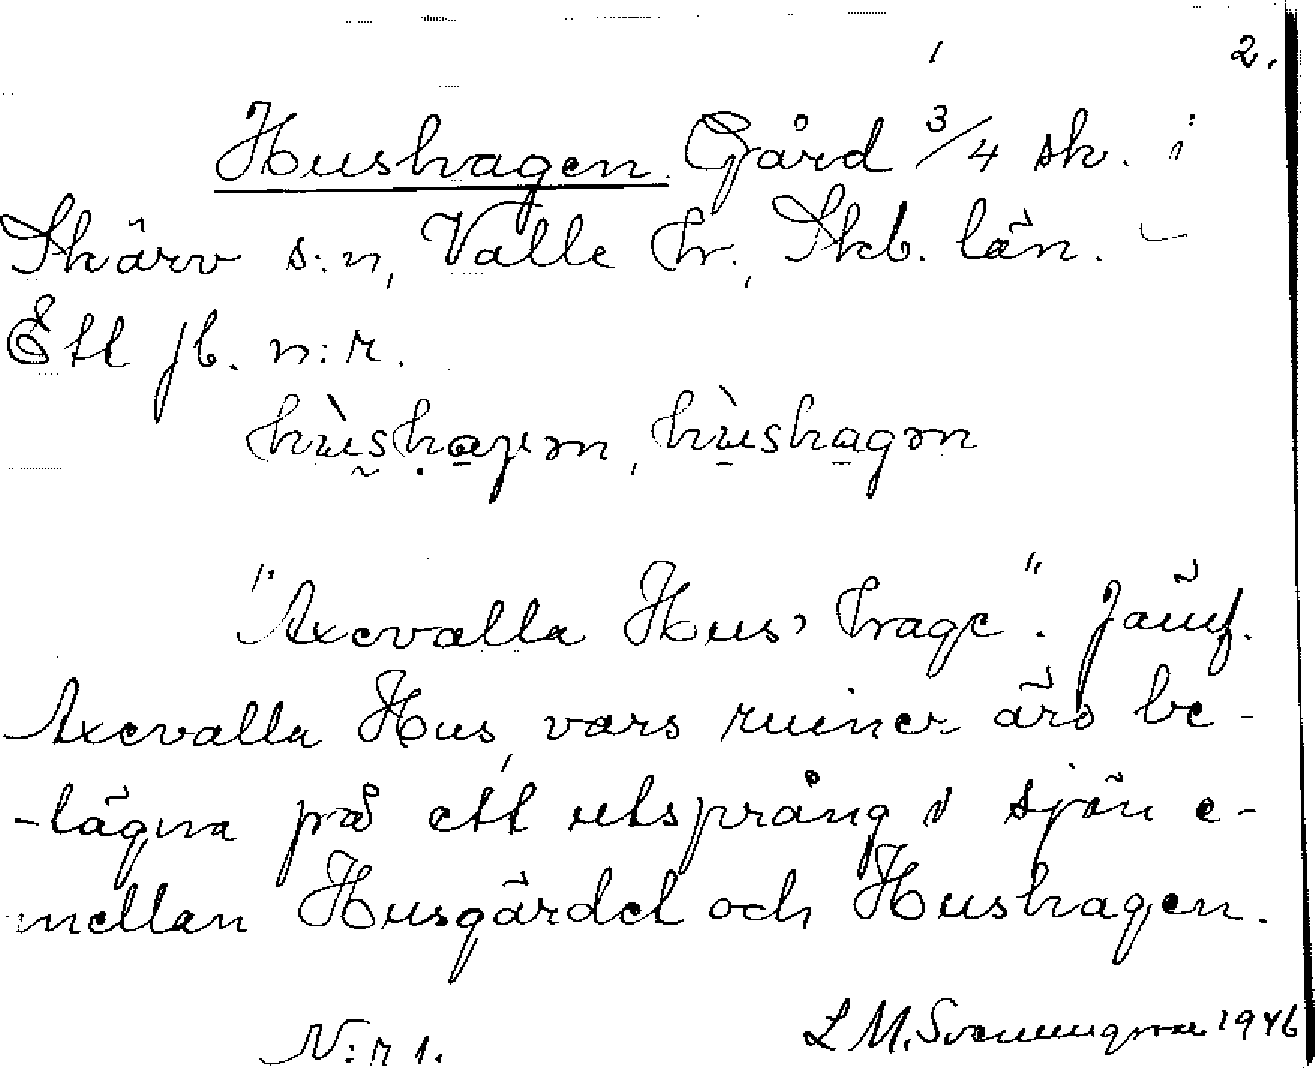 2.
Hushagen. Gård 3/4 sk. i
Skärv s:n, Valle hr., Skb. län. –
Ett jb. n:r.
hùshagen, hùshagən
"Axevalla Hus' hage". Jämf.
Axevalla Hus, vars ruiner äro be-
-lägna på ett utsprång i sjön e-
mellan Husgärdet och Hushagen.
N:r 1.
L M. Svenungsson 1946